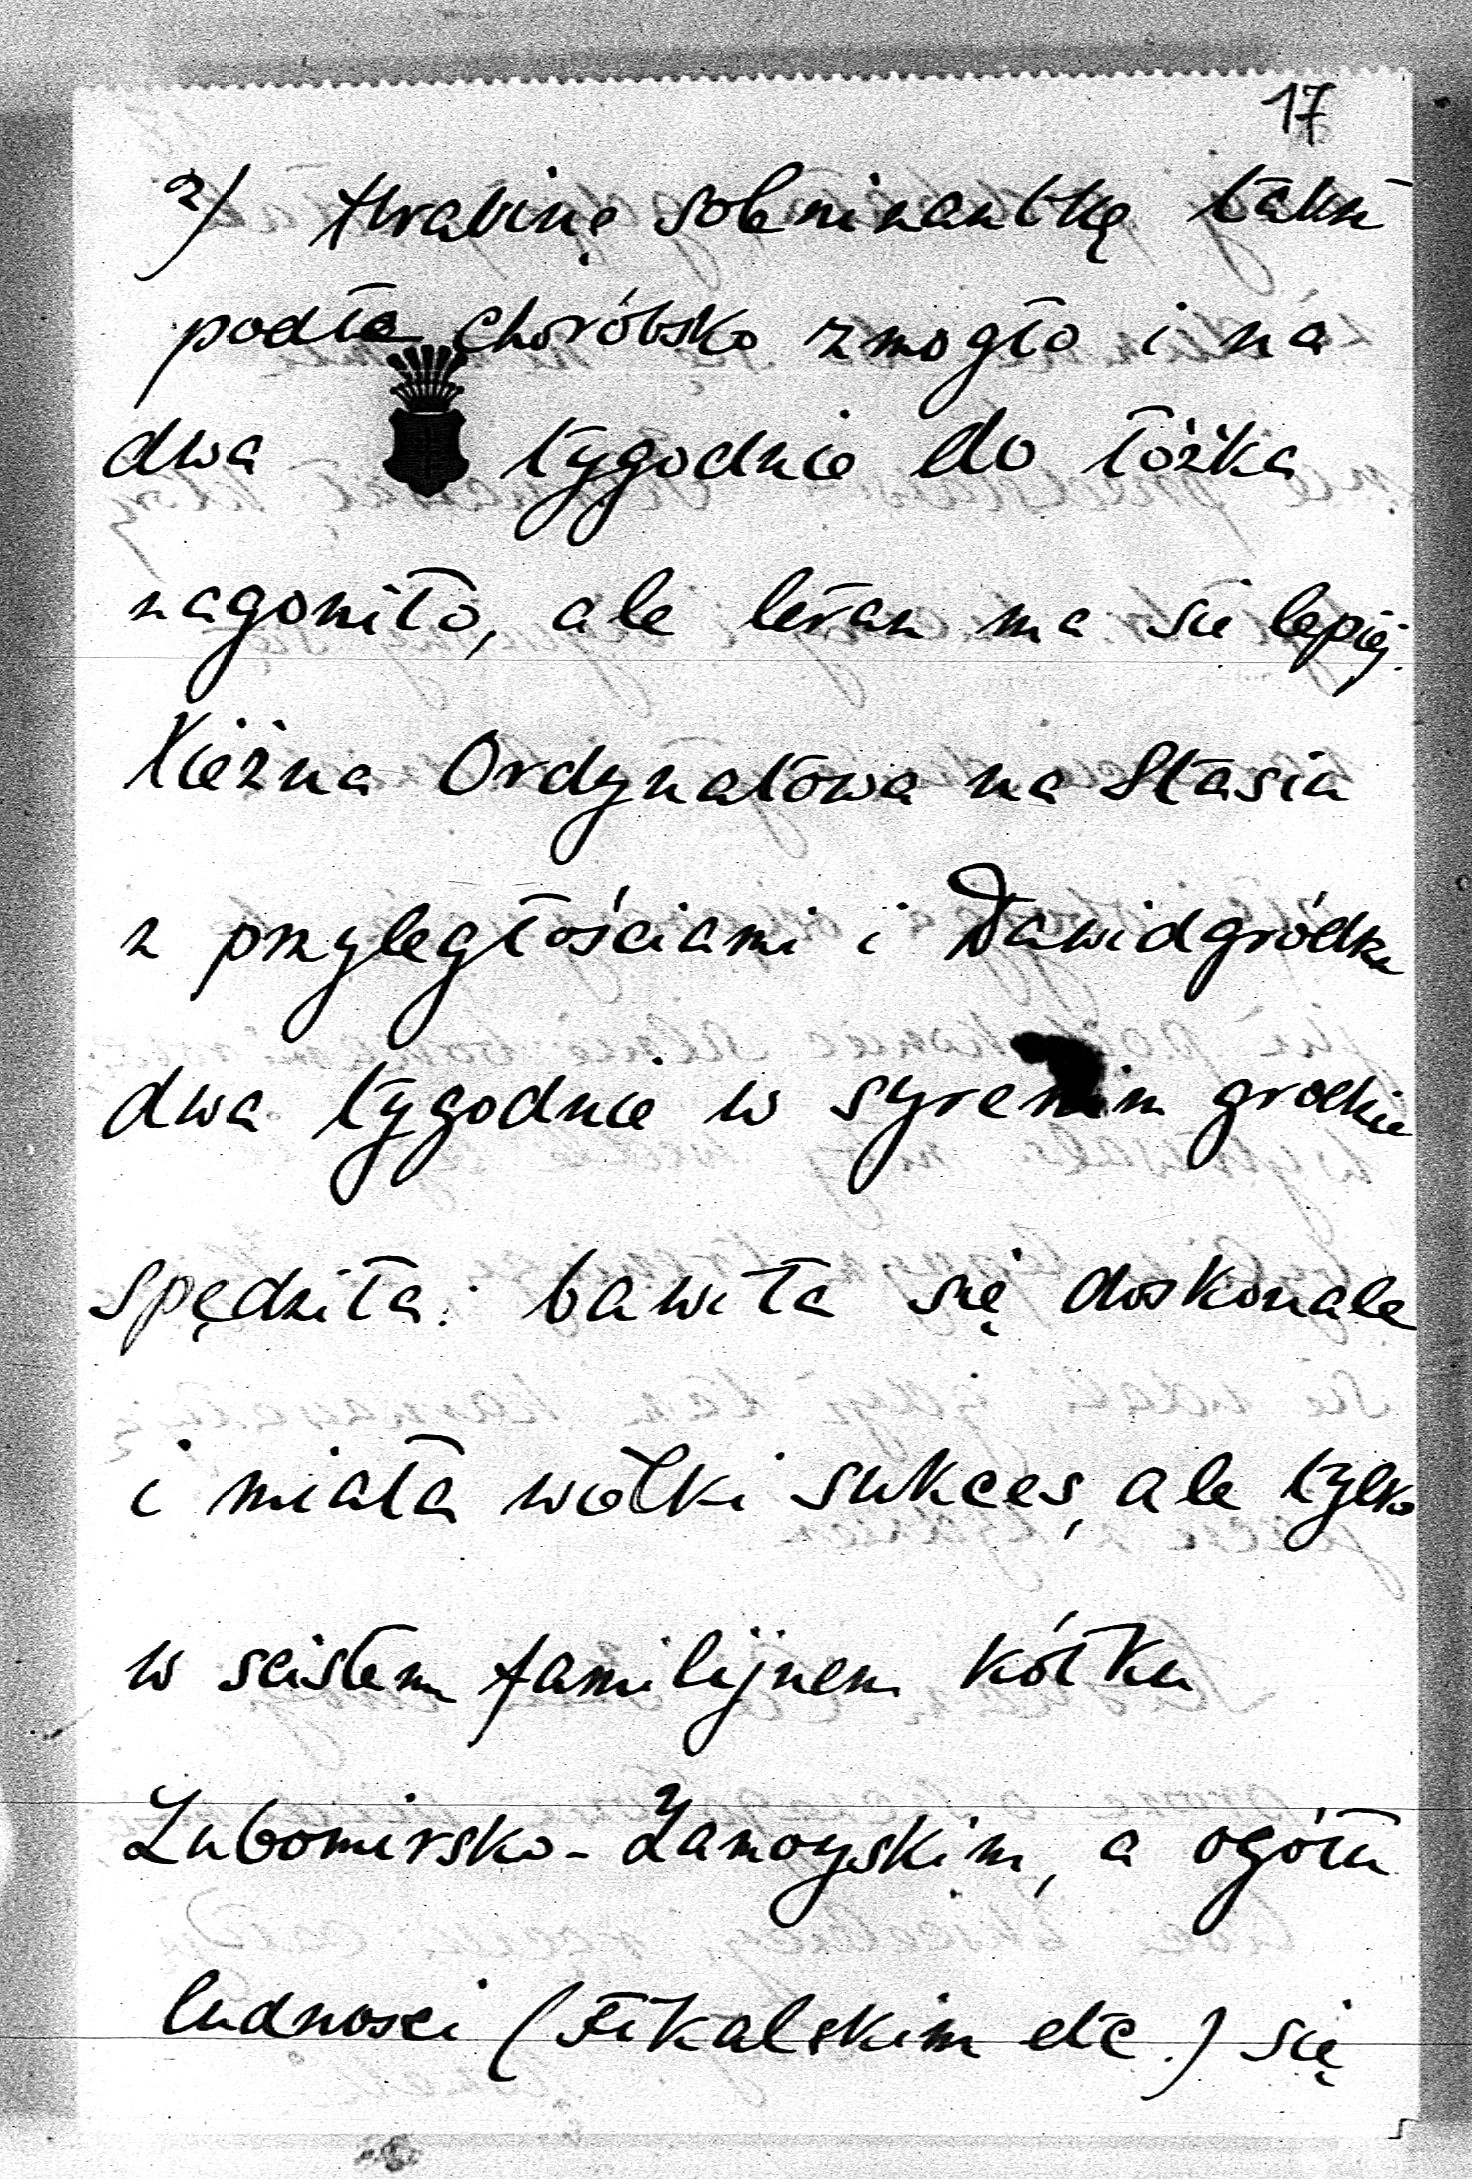 17
2) Hrabinę Solenizantkę także
podłe choróbsko zmogło i na
dwa tygodnie do łóżka
zagoniło, ale teraz ma się lepiej.
Xiężna Ordynatowa na Stasin
z przyległościami i Dawidgródku
dwa tygodnie w syrenim grodzie
spędziła: bawiła się doskonale
i miała wiełki sukces, ale tylko
w scisłem familijnem kółku
Lubomirsko-Zamoyskim, a ogółu
ludnosci (Fikalskim etc.) się